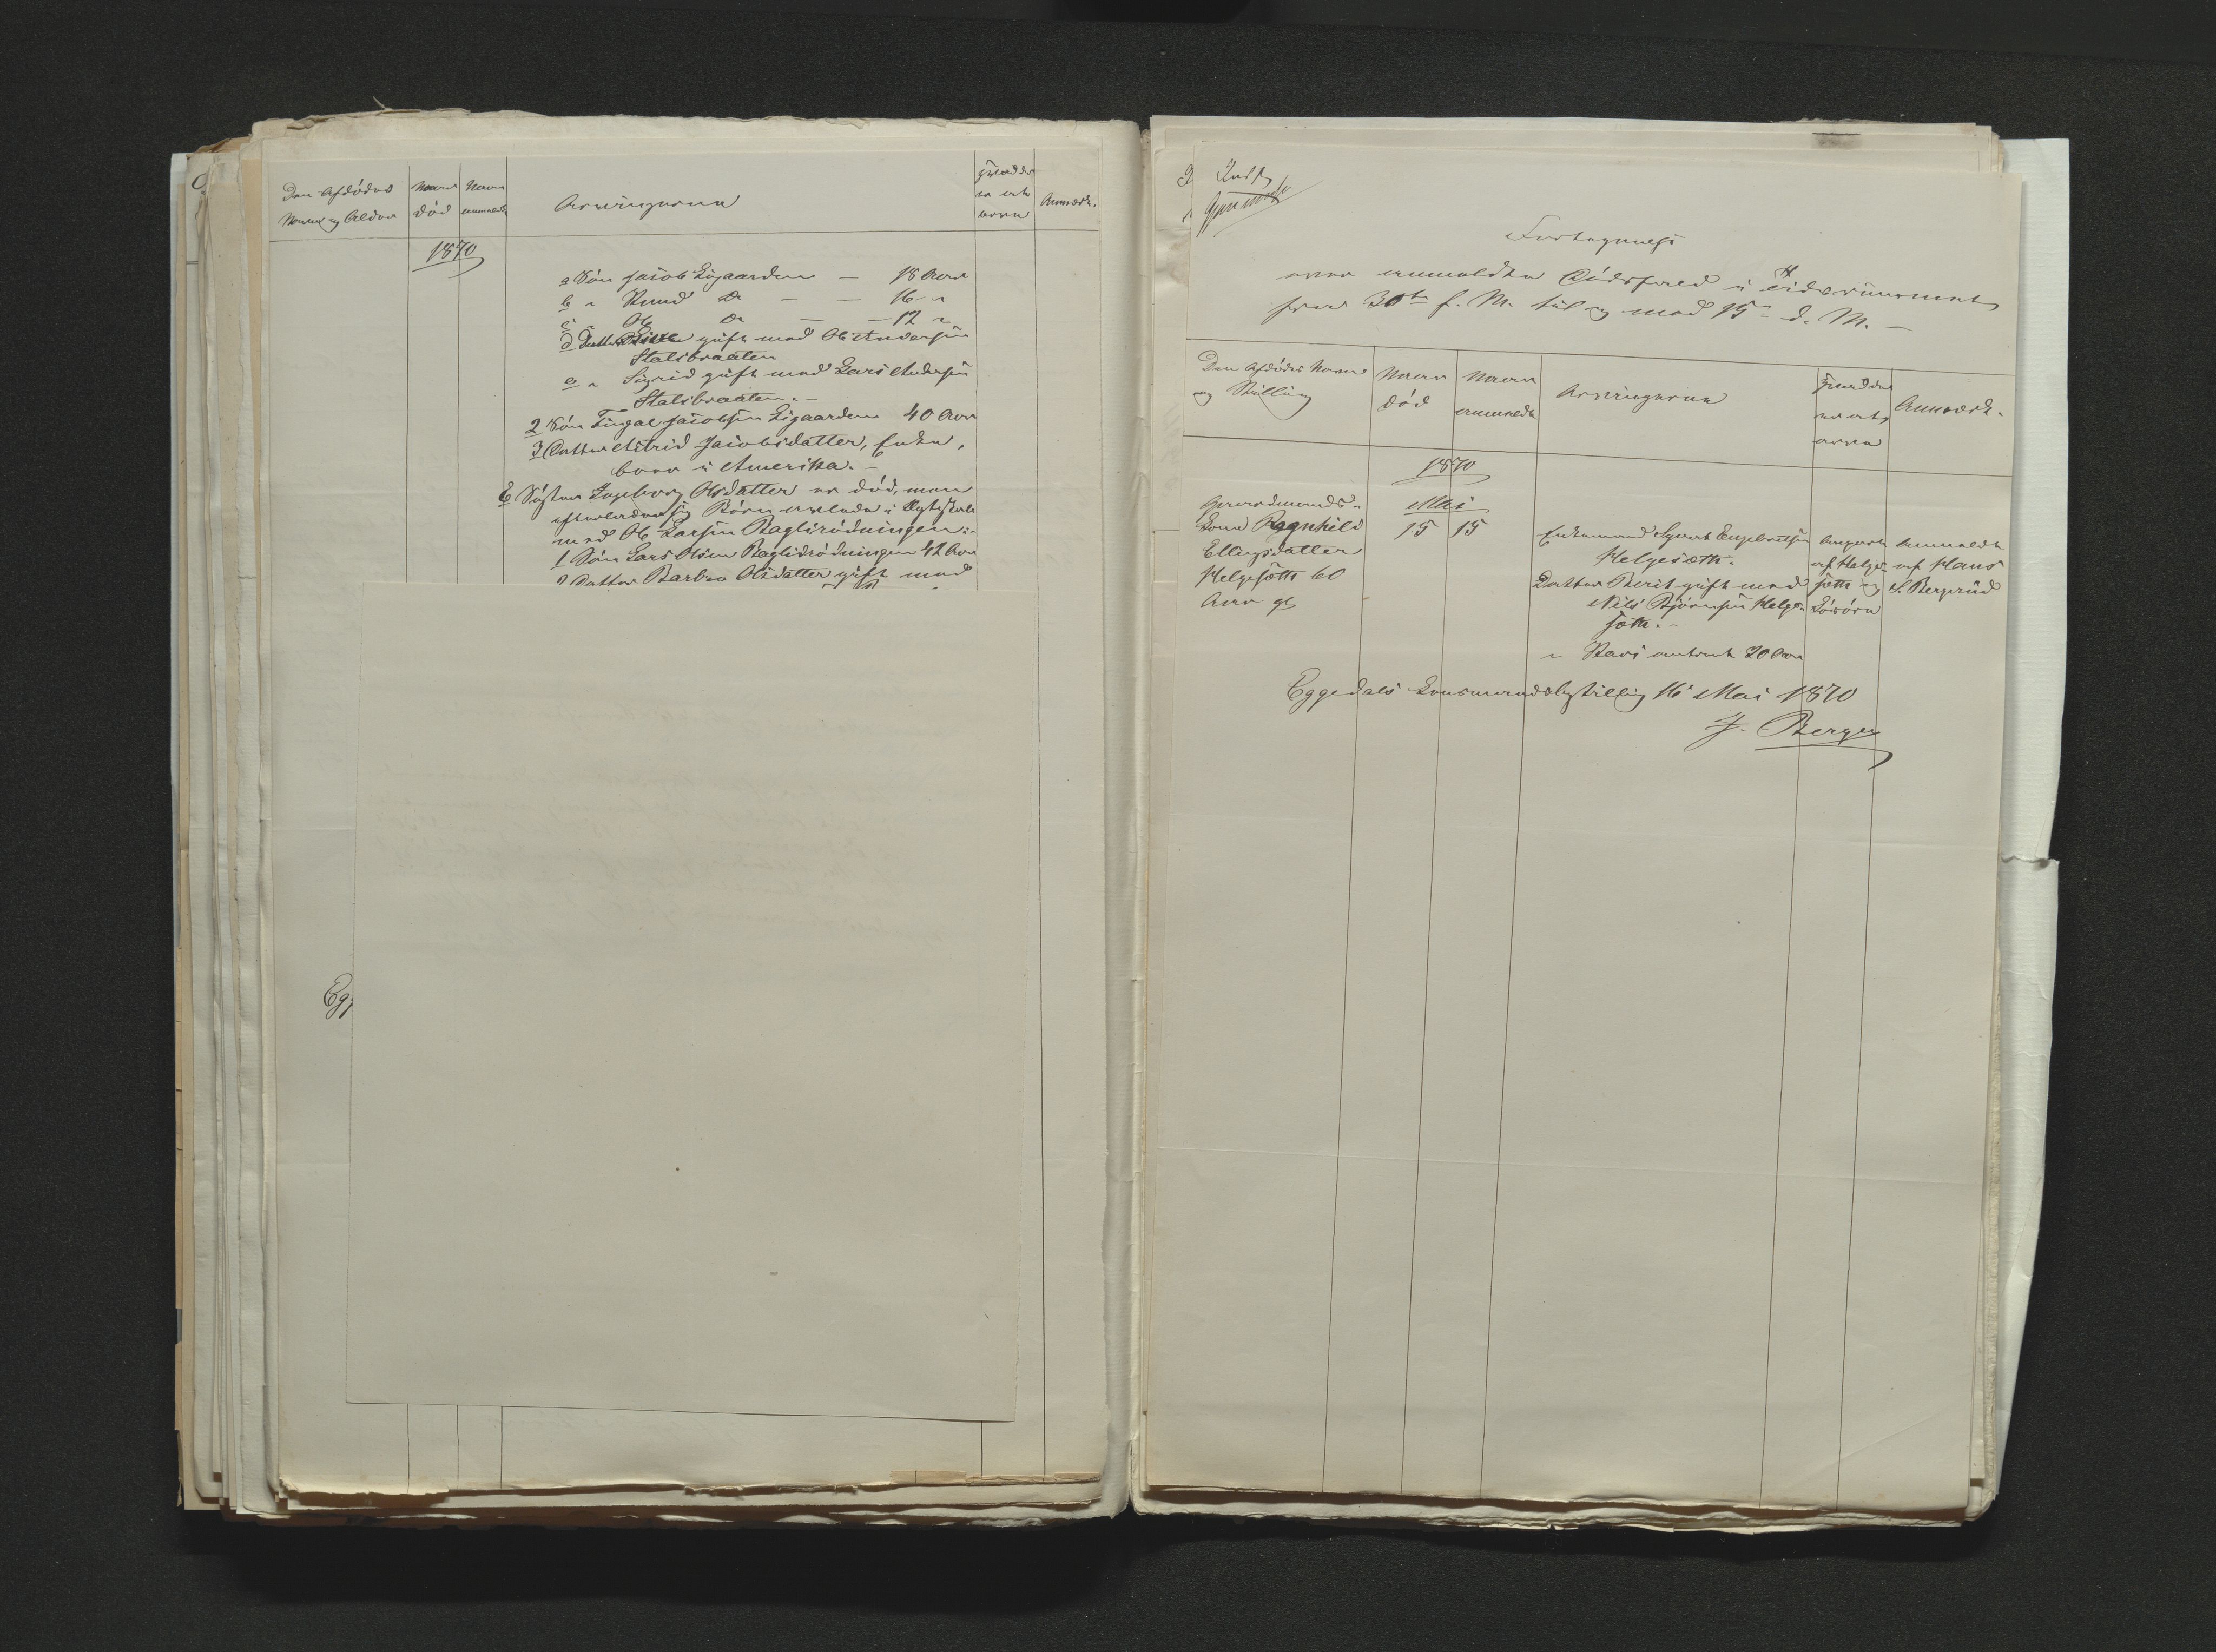 Den Afdødes
Navn og Alder
Naar
død
Naar
anmeldt
Arvingerne
Hvad der
er at
arve
Anmærk.
1870
a Søn Jacob Ligaarden — 18 Aar
b " Knud Do — — 16 "
c " Ole Do — — 12 "
d Datter Sissel gift med Ole Andersen
Stalsbraaten
e " Sigrid gift med Lars Andersen
Stalsbraaten. —
2 Søn Tingal Jacobsen Ligaarden 40 Aar
3 Datter Astrid Jacobsdatter, Enke,
boer i Amerika. —
E Søster Ingeborg Olsdatter er død, men
efterlader sig Børn avlede i Ægteskab
med Ole Larsen Baglirødningen:-
1 Søn Lars Olsen Baglirødningen 42 Aar
2 Datter Barbro Olsdatter gift med
Egg
Fortegnelse
over anmeldte Dødsfald i
fra 30te f. M. til og med 15de d. M. —
Den Afdødes Navn
og Stilling
Naar
død
Naar
anmeldt
Arvingerne
Hvad der
er at
arve
Anmærk.
1870
Gaardmands-
Kone Ragnhild
Ellingsdatter
Helgesætt 60
Aar gl
Mai
15 15
Enkemand Syvert Engebretsen
Helgesætt. —
Datter Berit gift med
Nils Bjørnsen Helge-
sætt. —
" Kari omtrent 20 Aar
Anpart
af Helge-
sætt og
Løsøre
Anmeldt
af Hans
S. Bergerud
Eggedals Lensmandsbestilling 16 Mai 1870
J. Berger